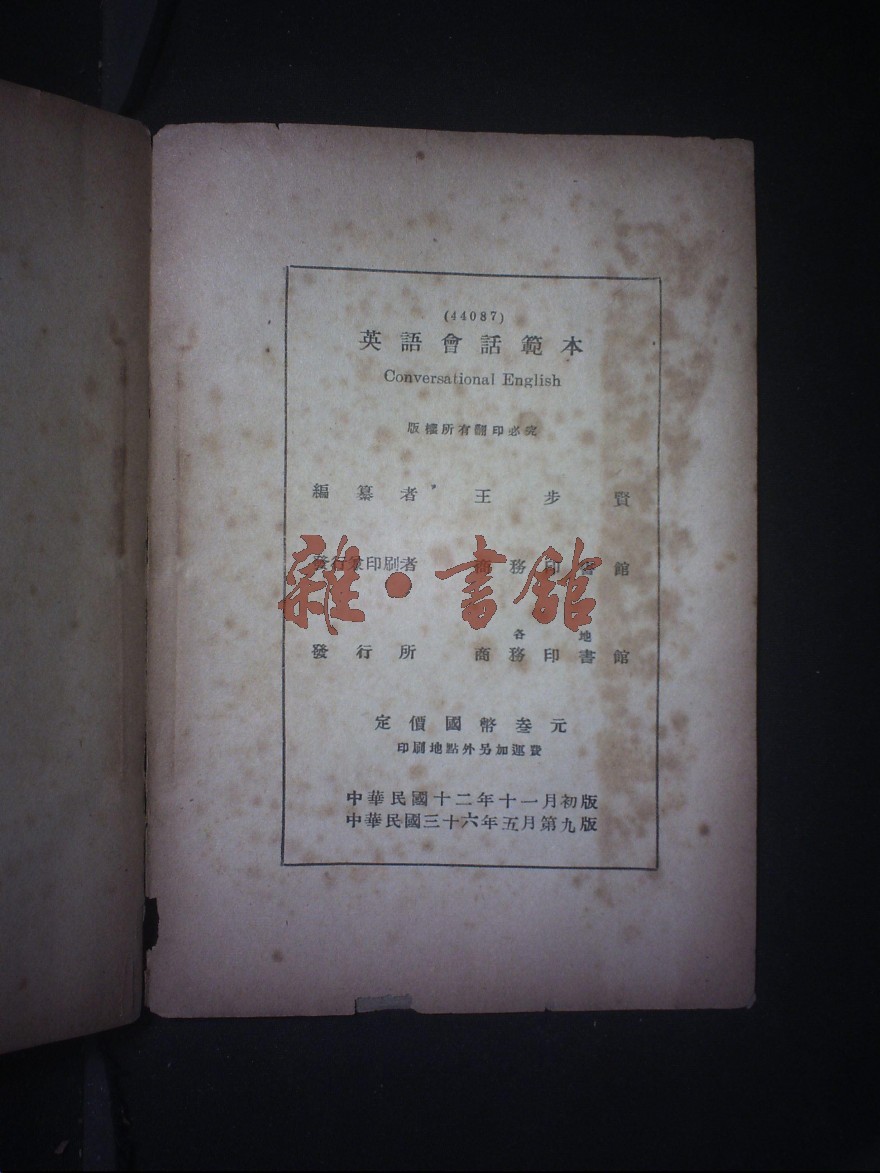 (44087)
英語會話範本
Conversational English
版權所有翻印必究
編纂者 王步賢
發行兼印刷者 商務印書館
雜·書館
各地
發行所 商務印書館
定價國幣叁元
印刷地點外另加運費
中華民國十二年十一月初版
中華民國三十六年五月第九版